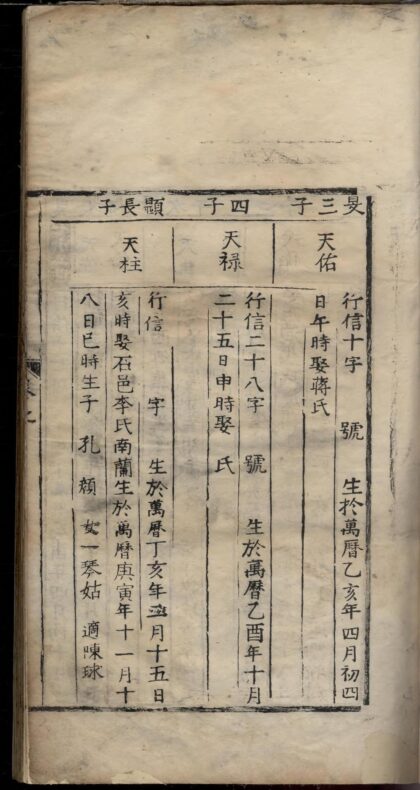 旻三子
四子
顯長子
天佑
天祿
天柱
行信十字 號 生於萬曆乙亥年四月初四
日午時娶蔣氏
行信二十八字 號 生於萬曆乙酉年十月
二十五日申時娶 氏
行信 字 生於萬曆丁亥年 月十五日
亥時娶石邑李氏南蘭生於萬曆庚寅年十一月十
八日巳時生子 孔顏 女一琴姑 適陳球